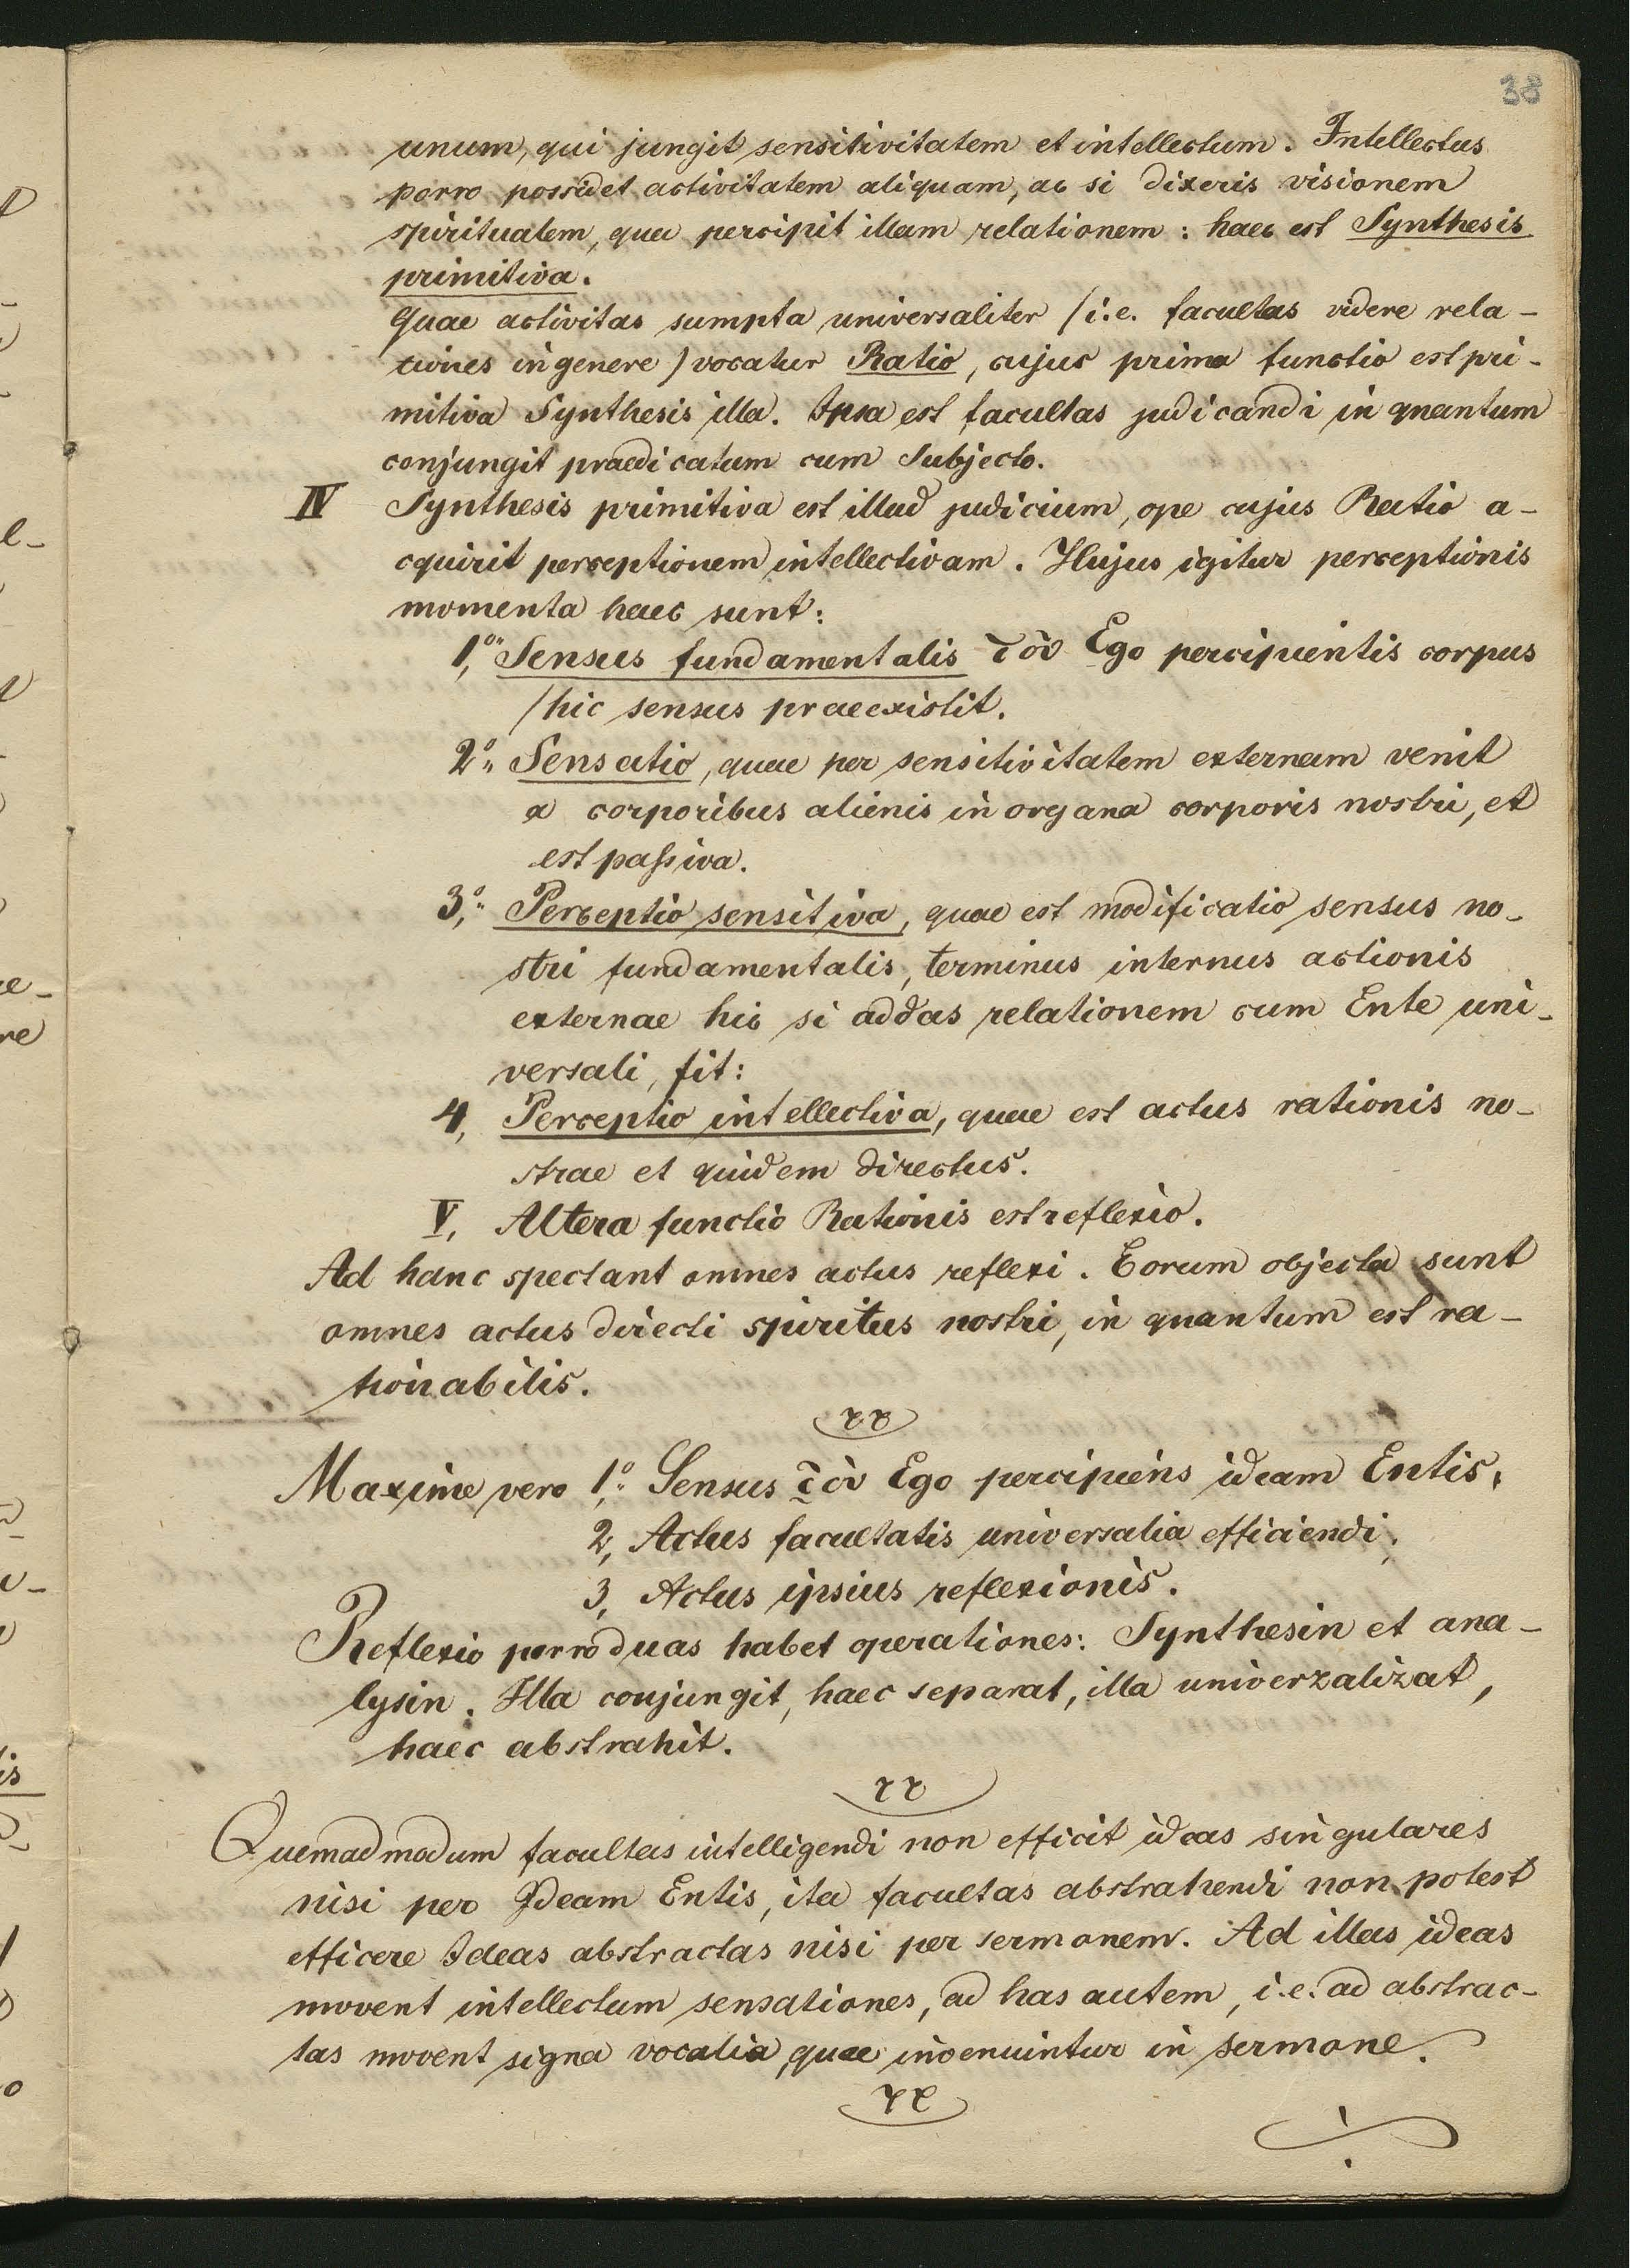 38
unum, qui jungit sensitivitatem et intellectum. Intellectus
porro possidet activitatem aliquam, ac si dixeris visionem
spiritualem, quae percipit illam relationem: haec est Synthesis
primitiva.
Quae activitas sumpta universaliter /i.e. facultas videre rela-
tiones in genere) vocatur Ratio, cujus prima functio est pri-
mitiva Synthesis illa. Ipsa est facultas judicandi in quantum
conjungit praedicatum cum Subjecto.
IV Synthesis primitiva est illud judicium, ope cujus Ratio a-
cquirit perceptionem intellectivam. Hujus igitur perceptionis
momenta haec sunt:
1,o Sensus fundamentalis τοῦ Ego percipientis corpus
/hic sensus praeexistit.
2o Sensatio, quae per sensitivitatem externam venit
a corporibus alienis in organa corporis nostri, et
est passiva.
3,o Perceptio sensitiva, quae est modificatio sensus no-
stri fundamentalis, terminus internus actionis
externae hic si addas relationem cum Ente uni-
versali, fit:
4, Perceptio intellectiva, quae est actus rationis no-
strae et quidem directus.
V, Altera functio Rationis est reflexio.
Ad hanc spectant omnes actus reflexi. Eorum objecta sunt
omnes actus directi spiritus nostri, in quantum est ra-
tionabilis.
Maxime vero 1,o Sensus τοῦ Ego percipiens ideam Entis,
2, Actus facultatis universalia efficiendi,
3, Actus ipsius reflexionis.
Reflexio porro duas habet operationes: Synthesin et ana-
lysin. Illa conjungit, haec separat, illa univerzalizat,
haec abstrahit.
Quemadmodum facultas intelligendi non efficit ideas singulares
nisi per Ideam Entis, ita facultas abstrahendi non potest
efficere Ideas abstractas nisi per sermonem. Ad illas ideas
movent intellectum sensationes, ad has autem, i.e. ad abstrac-
tas movent signa vocalia, quae inveniuntur in sermone.